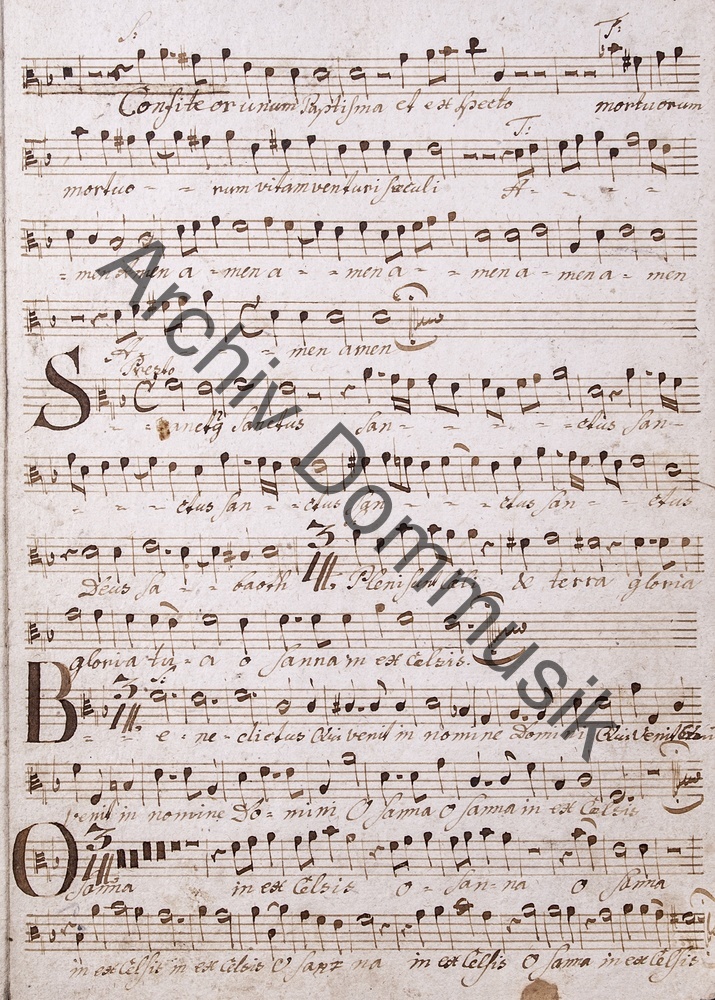 S: T:
Confiteor unum Baptisma et expecto mortuorum
T:
mortuo - - rum vitam venturi sæculi A - - - -
- men amen a - men a - - men a - - men a - men a - men
- men amen
Presto
S - - anctus Sanctus San - - - - ctus San-
- - - ctus San - - ctus San - - - ctus San - - ctus
Deus Sa - - baoth T. Pleni sunt Coeli & terra gloria
gloria tu - a o Sanna in excelsis.
S:
B - - e - ne - dictus Qui venit in nomine Domini Qui venit
venit in nomine Do - mini O Sanna O Sanna in excelsis
O Sanna in excelsis O - San - na O Sanna
in excelsis in excelsis O Sanna in excelsis O Sanna in excelsis
Archiv Dommusik